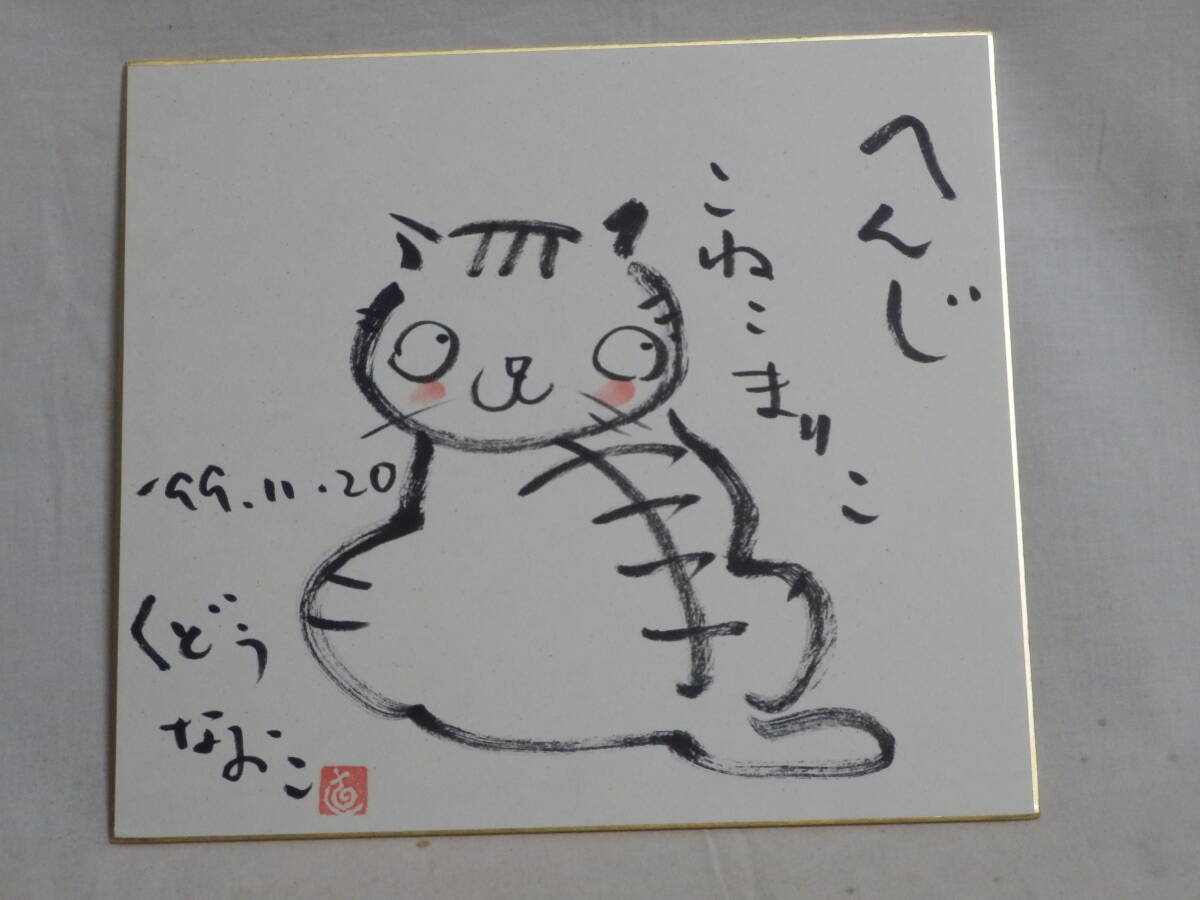 へんじ
こねこまりこ
'99.11.20
くどう
なおこ